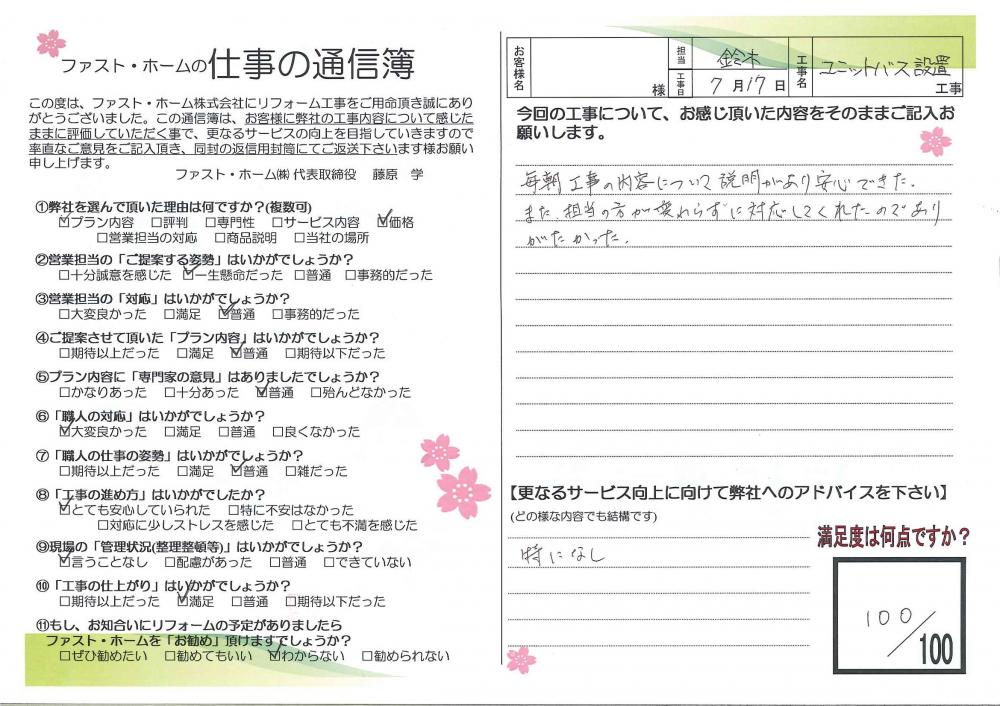 ファスト・ホームの仕事の通信簿
この度は、ファスト・ホーム株式会社にリフォーム工事をご用命頂き誠にあり
がとうございました。この通信簿は、お客様に弊社の工事内容について感じた
ままに評価していただく事で、更なるサービスの向上を目指していきますので
率直なご意見をご記入頂き、同封の返信用封筒にてご返送下さいます様お願い
申し上げます。
ファスト・ホーム㈱代表取締役 藤原 学
①弊社を選んで頂いた理由は何ですか?(複数可)
☑プラン内容 □評判 □専門性 □サービス内容 ☑価格
□営業担当の対応 □商品説明 □当社の場所
②営業担当の「ご提案する姿勢」はいかがでしょうか?
□十分誠意を感じた ☑一生懸命だった □普通 □事務的だった
③営業担当の「対応」はいかがでしょうか?
□大変良かった □満足 ☑普通 □事務的だった
④ご提案させて頂いた「プラン内容」はいかがでしょうか?
□期待以上だった □満足 ☑普通 □期待以下だった
⑤プラン内容に「専門家の意見」はありましたでしょうか?
□かなりあった □十分あった ☑普通 □殆んどなかった
⑥「職人の対応」はいかがでしょうか?
☑大変良かった □満足 □普通 □良くなかった
⑦「職人の仕事の姿勢」はいかがでしょうか?
□期待以上だった □満足 ☑普通 □雑だった
⑧「工事の進め方」はいかがでしたか?
☑とても安心していられた □特に不安はなかった
□対応に少しストレスを感じた □とても不満を感じた
⑨現場の「管理状況(整理整頓等)」はいかがでしょうか?
☑言うことなし □配慮があった □普通 □できていない
⑩「工事の仕上がり」はいかがでしょうか?
□期待以上だった ☑満足 □普通 □期待以下だった
⑪もし、お知合いにリフォームの予定がありましたら
ファスト・ホームを「お勧め」頂けますでしょうか?
□ぜひ勧めたい □勧めてもいい ☑わからない □勧められない
お客様名 様 担当 鈴木 工事日 7月17日 工事名 ユニットバス設置 工事
今回の工事について、お感じ頂いた内容をそのままご記入お
願いします。
毎朝工事の内容について説明があり安心できた.
また担当の方が変わらずに対応してくれたのであり
がたかった.
【更なるサービス向上に向けて弊社へのアドバイスを下さい】
(どの様な内容でも結構です)
特になし
満足度は何点ですか?
100/100